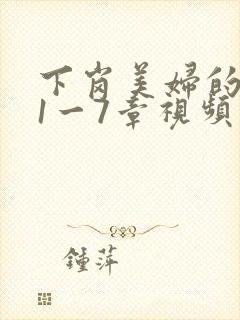 下岗美婦的
1一7章視頻
鍾萍